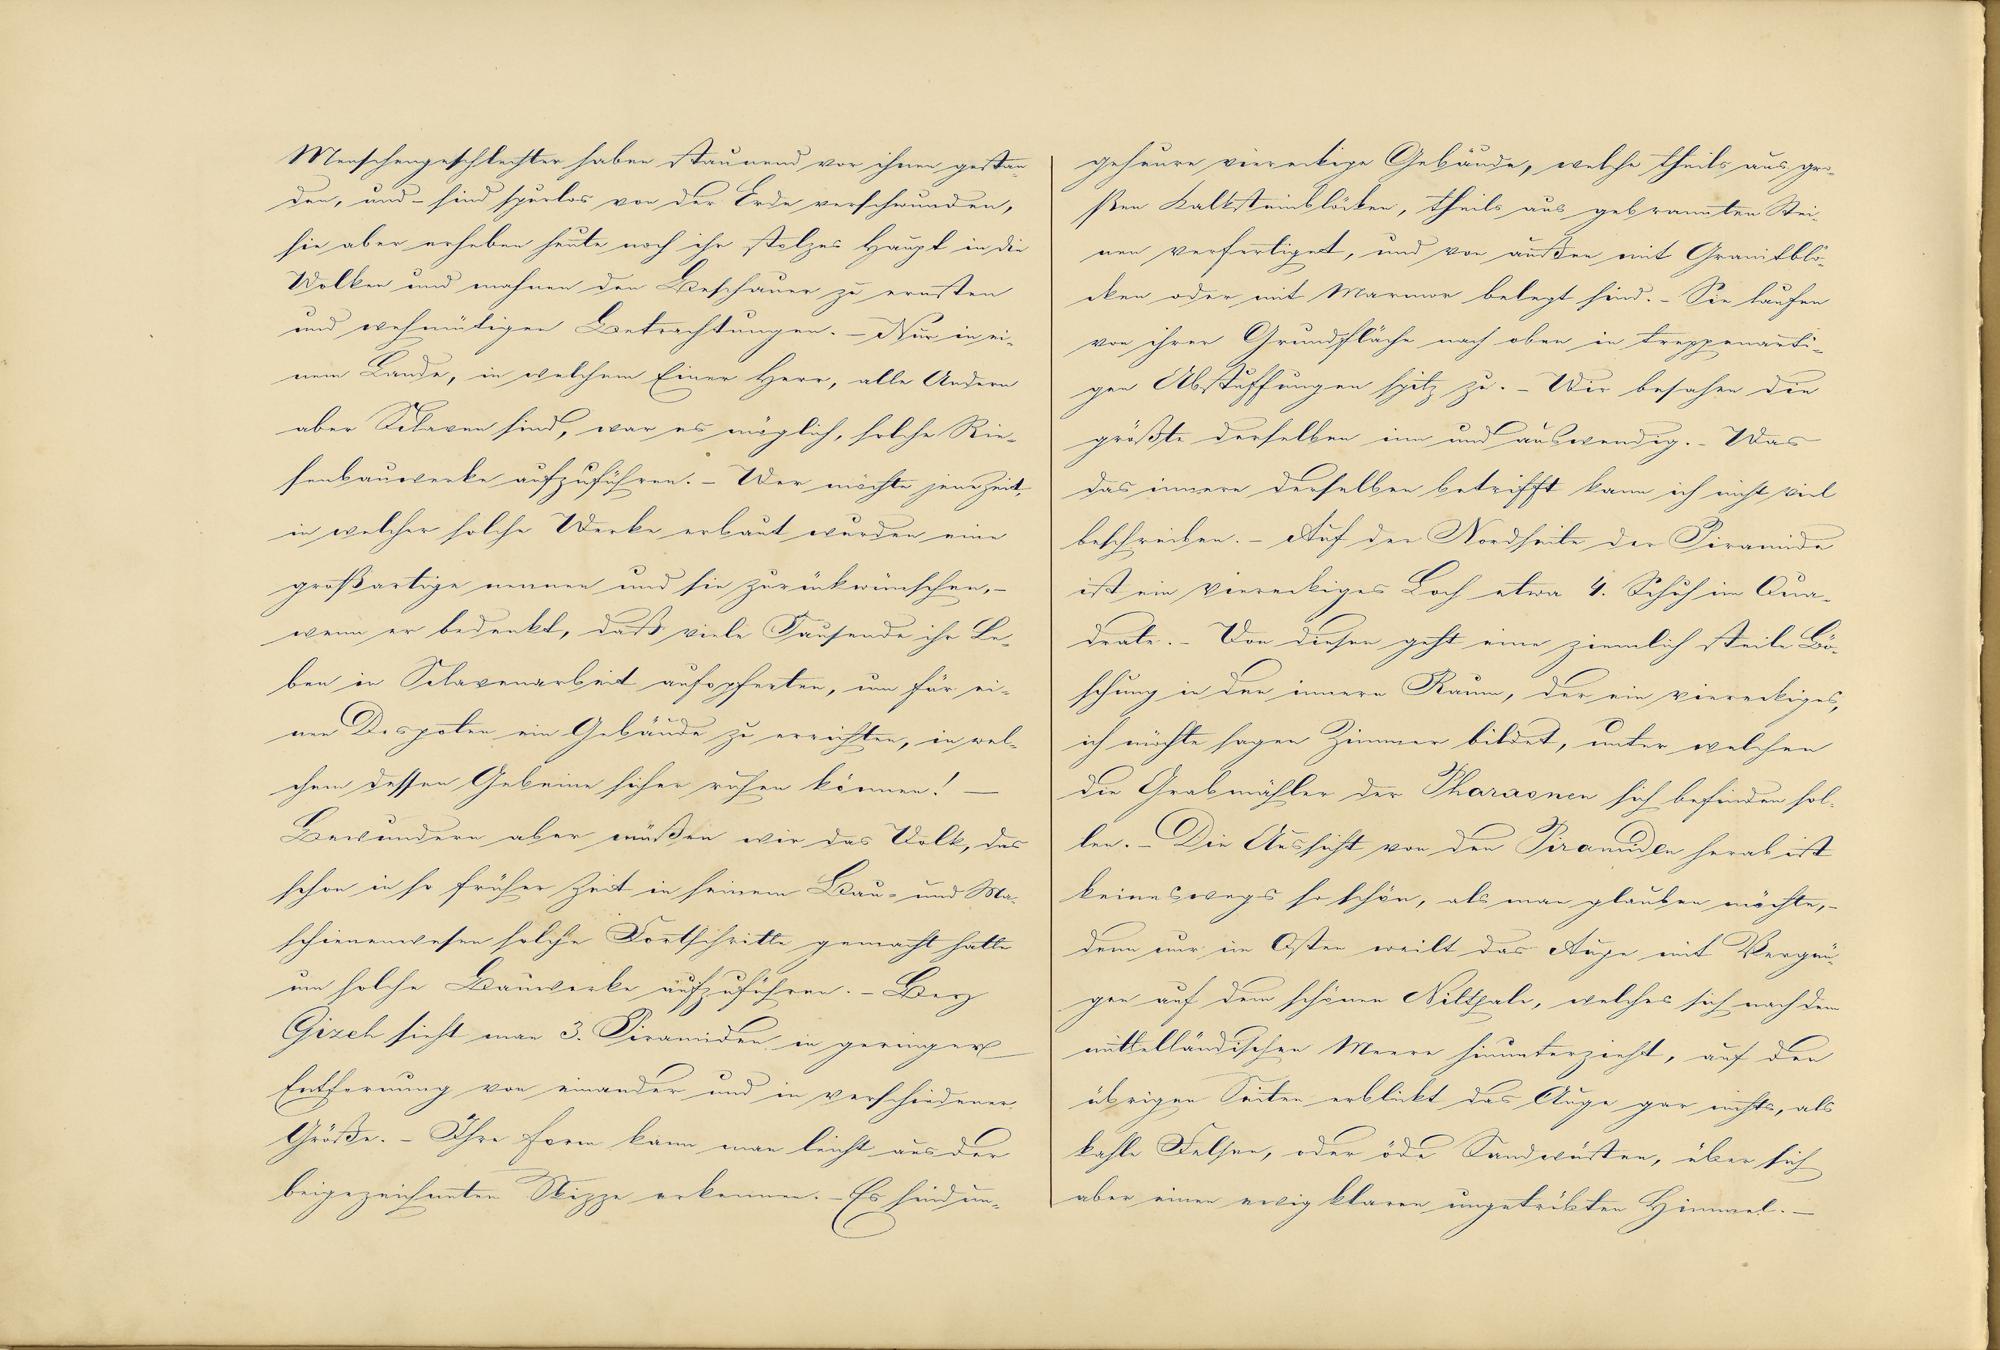 Menschengeschlechter haben staunend vor ihnen gestan-
den, und - sind spurlos von der Erde verschwunden,
sie aber erheben heute noch ihr stolzes Haupt in die
Wolken und mahnen den Beschauer zu ernsten
und wehmütigen Betrachtungen. - Nur in ei-
nem Lande, in welchem Einer Herr, alle Andern
aber Sclaven sind, war es möglich, solche Rie-
senbauwerke aufzuführen. - Wer möchte jene Zeit,
in welcher solche Werke erbaut wurden eine
großartige nennen und sie zurückwünschen, -
wenn er bedenkt, daß viele Tausende ihr Le-
ben in Sclavenarbeit aufopferten, um für ei-
nen Despoten ein Gebäude zu errichten, in wel-
chem dessen Gebeine sicher ruhen können! -
Bewundern aber müßen wir das Volk, das
schon in so früher Zeit in seinem Bau- und Ma-
schienenwesen solche Fortschritte gemacht hatte
um solche Bauwerke aufzuführen. - Bey
Gizeh sieht man 3. Piramiden in geringer
Entfernung von einander und in verschiedener
Größe. - Ihre Form kann man leicht aus der
beigezeichneten Skizze erkennen. - Es sind un-
geheure viereckige Gebäude, welche theils aus gro-
ßen Kalksteinblöcken, theils aus gebrannten Stei-
nen verfertiget, und von außen mit Granitblö-
cken oder mit Marmor belegt sind. - Sie laufen
von ihrer Grundfläche nach oben in treppenarti-
gen Abstuffungen spitz zu. - Wir besahen die
größte derselben inn und auswendig. - Was
das innere derselben betrifft kann ich nicht viel
beschreiben. - Auf der Nordseite der Piramide
ist ein viereckiges Loch etwa 4. Schuh im Qua-
drate. - Von diesen geht eine ziemlich steile Bö-
schung in den innern Raum, der ein viereckiges,
ich möchte sagen Zimmer bildet, unter welchen
die Grabmähler der Pharaonen sich befinden sol-
len. - Die Aussicht von den Piramiden herab ist
keineswegs so schön, als man glauben möchte, -
denn nur im Osten weilt das Auge mit Vergnü-
gen auf dem schönen Nilthale, welches sich nach dem
mittelländischen Meere hinunterzieht, auf den
übrigen Seiten erblickt das Auge gar nichts, als
kahle Felsen, oder öde Sandwüsten, über sich
aber einen ewig klaren ungetrübten Himmel. -